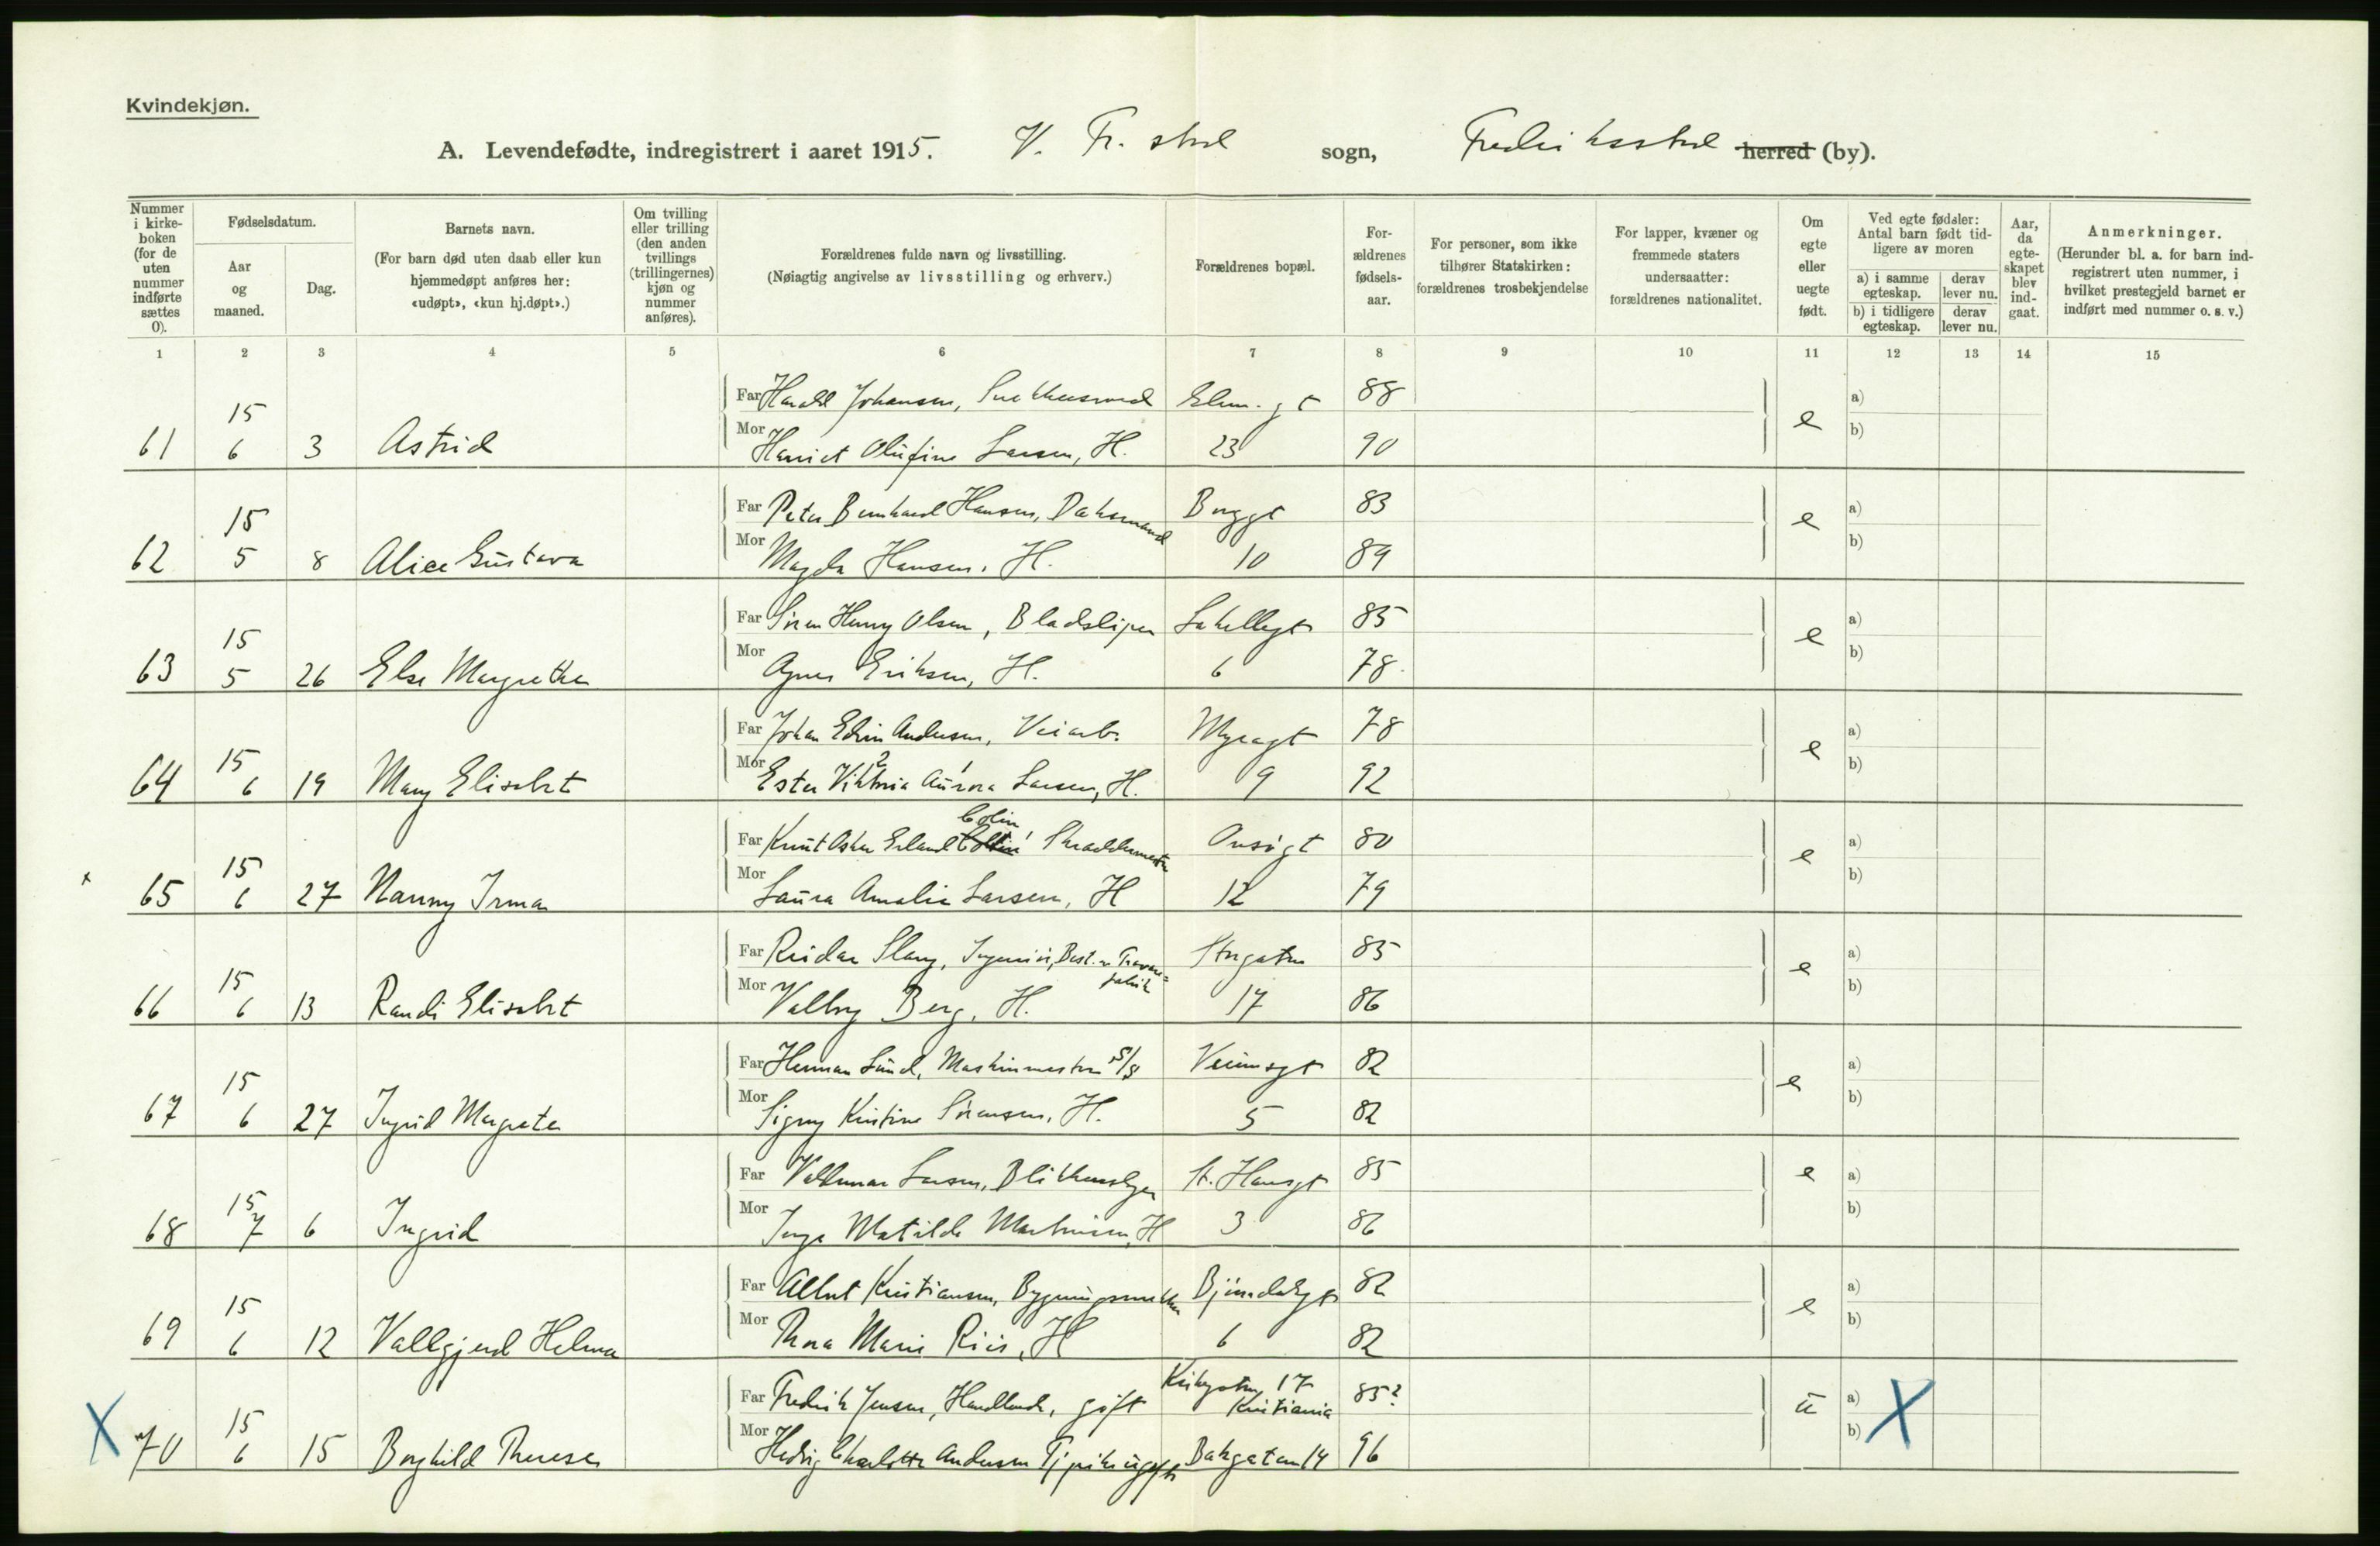 Kvindekjøn.
A. Levendefødte, indregistrert i aaret 1915. V. Fr. stad sogn, Fredriksstad herred (by).
Nummer i kirke-boken (for de uten nummer indførte sættes 0).
Fødselsdatum.
Aar og maaned.
Dag.
Barnets navn.
(For barn død uten daab eller kun hjemmedøpt anføres her: «udøpt», «kun hj.døpt».)
Om tvilling eller trilling (den anden tvillings (trillingernes) kjøn og nummer anføres).
Forældrenes fulde navn og livsstilling.
(Nøiagtig angivelse av livsstilling og erhverv.)
Forældrenes bopæl.
For-ældrenes fødsels-aar.
For personer, som ikke tilhører Statskirken: forældrenes trosbekjendelse
For lapper, kvæner og fremmede staters undersaatter: forældrenes nationalitet.
Om egte eller uegte født.
Ved egte fødsler: Antal barn født tid-ligere av moren
a) i samme egteskap.
derav lever nu.
b) i tidligere egteskap.
derav lever nu.
Aar, da egte-skapet blev ind-gaat.
Anmerkninger.
(Herunder bl. a. for barn ind-registrert uten nummer, i hvilket prestegjeld barnet er indført med nummer o. s. v.)
1 2 3 4 5 6 7 8 9 10 11 12 13 14 15
15 Far Harald Johansen, gt 88 a)
61 6 3 Astrid Mor Harriet Olufine Larsen, H. 23 90 e b)
15 Far Peter Bernhard Hansen, Daksmand Bryggt 83 a)
62 5 8 Alice Gustava Mor Magda Hansen, H. 10 89 e b)
15 Far Sören Henry Olsen, Bladsliper 85 a)
63 5 26 Else Margrethe Mor Agnes Eriksen, H. 6 78 e b)
15 Far Johan Edvin Andersen, Veiarb. Myragt 78 a)
64 6 19 Mary Elisabet Mor Ester Viktoria 2 Aurora 1 Larsen, H. 9 92 e b)
Colin
15 Far Knut Oskar Erland Skreddermester Onsögt 80 a)
x 65 6 27 Nanny Irma Mor Laura Amalie Larsen, H 12 79 e b)
15 Far Reidar Slang, Ingeniör, Best. v. Travare=fabrik Storgaten 85 a)
66 6 13 Randi Elisabet Mor Valborg Berg, H. 17 86 e b)
15 Far Herman Lund, Maskinmester S/S 82 a)
67 6 27 Ingrid Margrete Mor Signy Kristine Sörensen, H. 5 82 e b)
15 Far Valdemar Larsen, Blikkenslager St. Hansgt 85 e a)
68 7 6 Ingrid Mor Inga Matilde Martinsen, H 3 86 b)
15 Far Albert Kristiansen, Bygningssnekker 82 a)
69 6 12 Valbgjerd Helma Mor Thora Marie Riis, H 6 82 e b)
15 Far Fredrik Jensen, Handlende, gift 17 Kristiania 85? ü a) X
X 70 6 15 Borghild Therese Mor Hedvig Charlotte Andersen Tj.pike ugift Bakgaten 14 96 b)